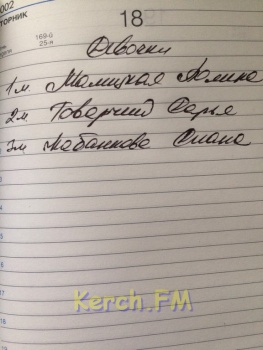 002
ТОРНИК
18
169-й
25-я
Девочки
1м Малицкая Полина
2м Товарчид Дарья
3м Лабанкова Диана
Kerch.FM